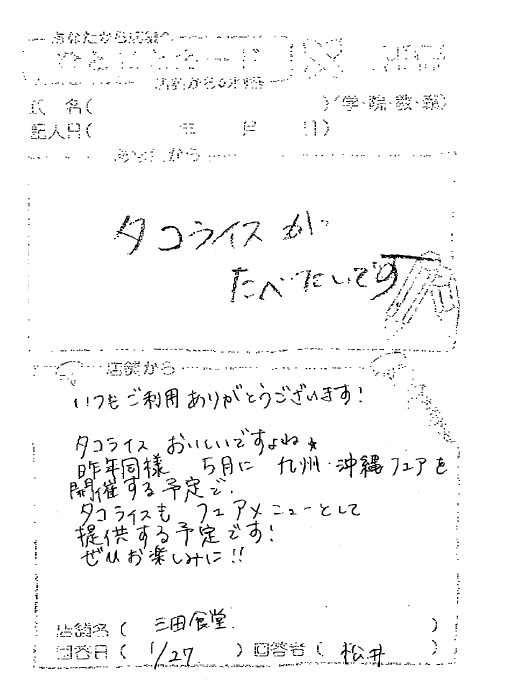 あなたから店舗へ
ひとことカード
店舗からの
氏 名( )(学・院・教・
記入日( 年 月 日)
あなたから
タコライスが
たべたいです
店舗から
いつもご利用ありがとうございます!
タコライス おいしいですよね★
昨年同様 5月に 九州・沖縄フェアを
開催する予定で、
タコライスも フェアメニューとして
提供する予定です!
ぜひお楽しみに!!
店舗名( 三田食堂 )
回答日( 1/27 )回答者( 松井 )